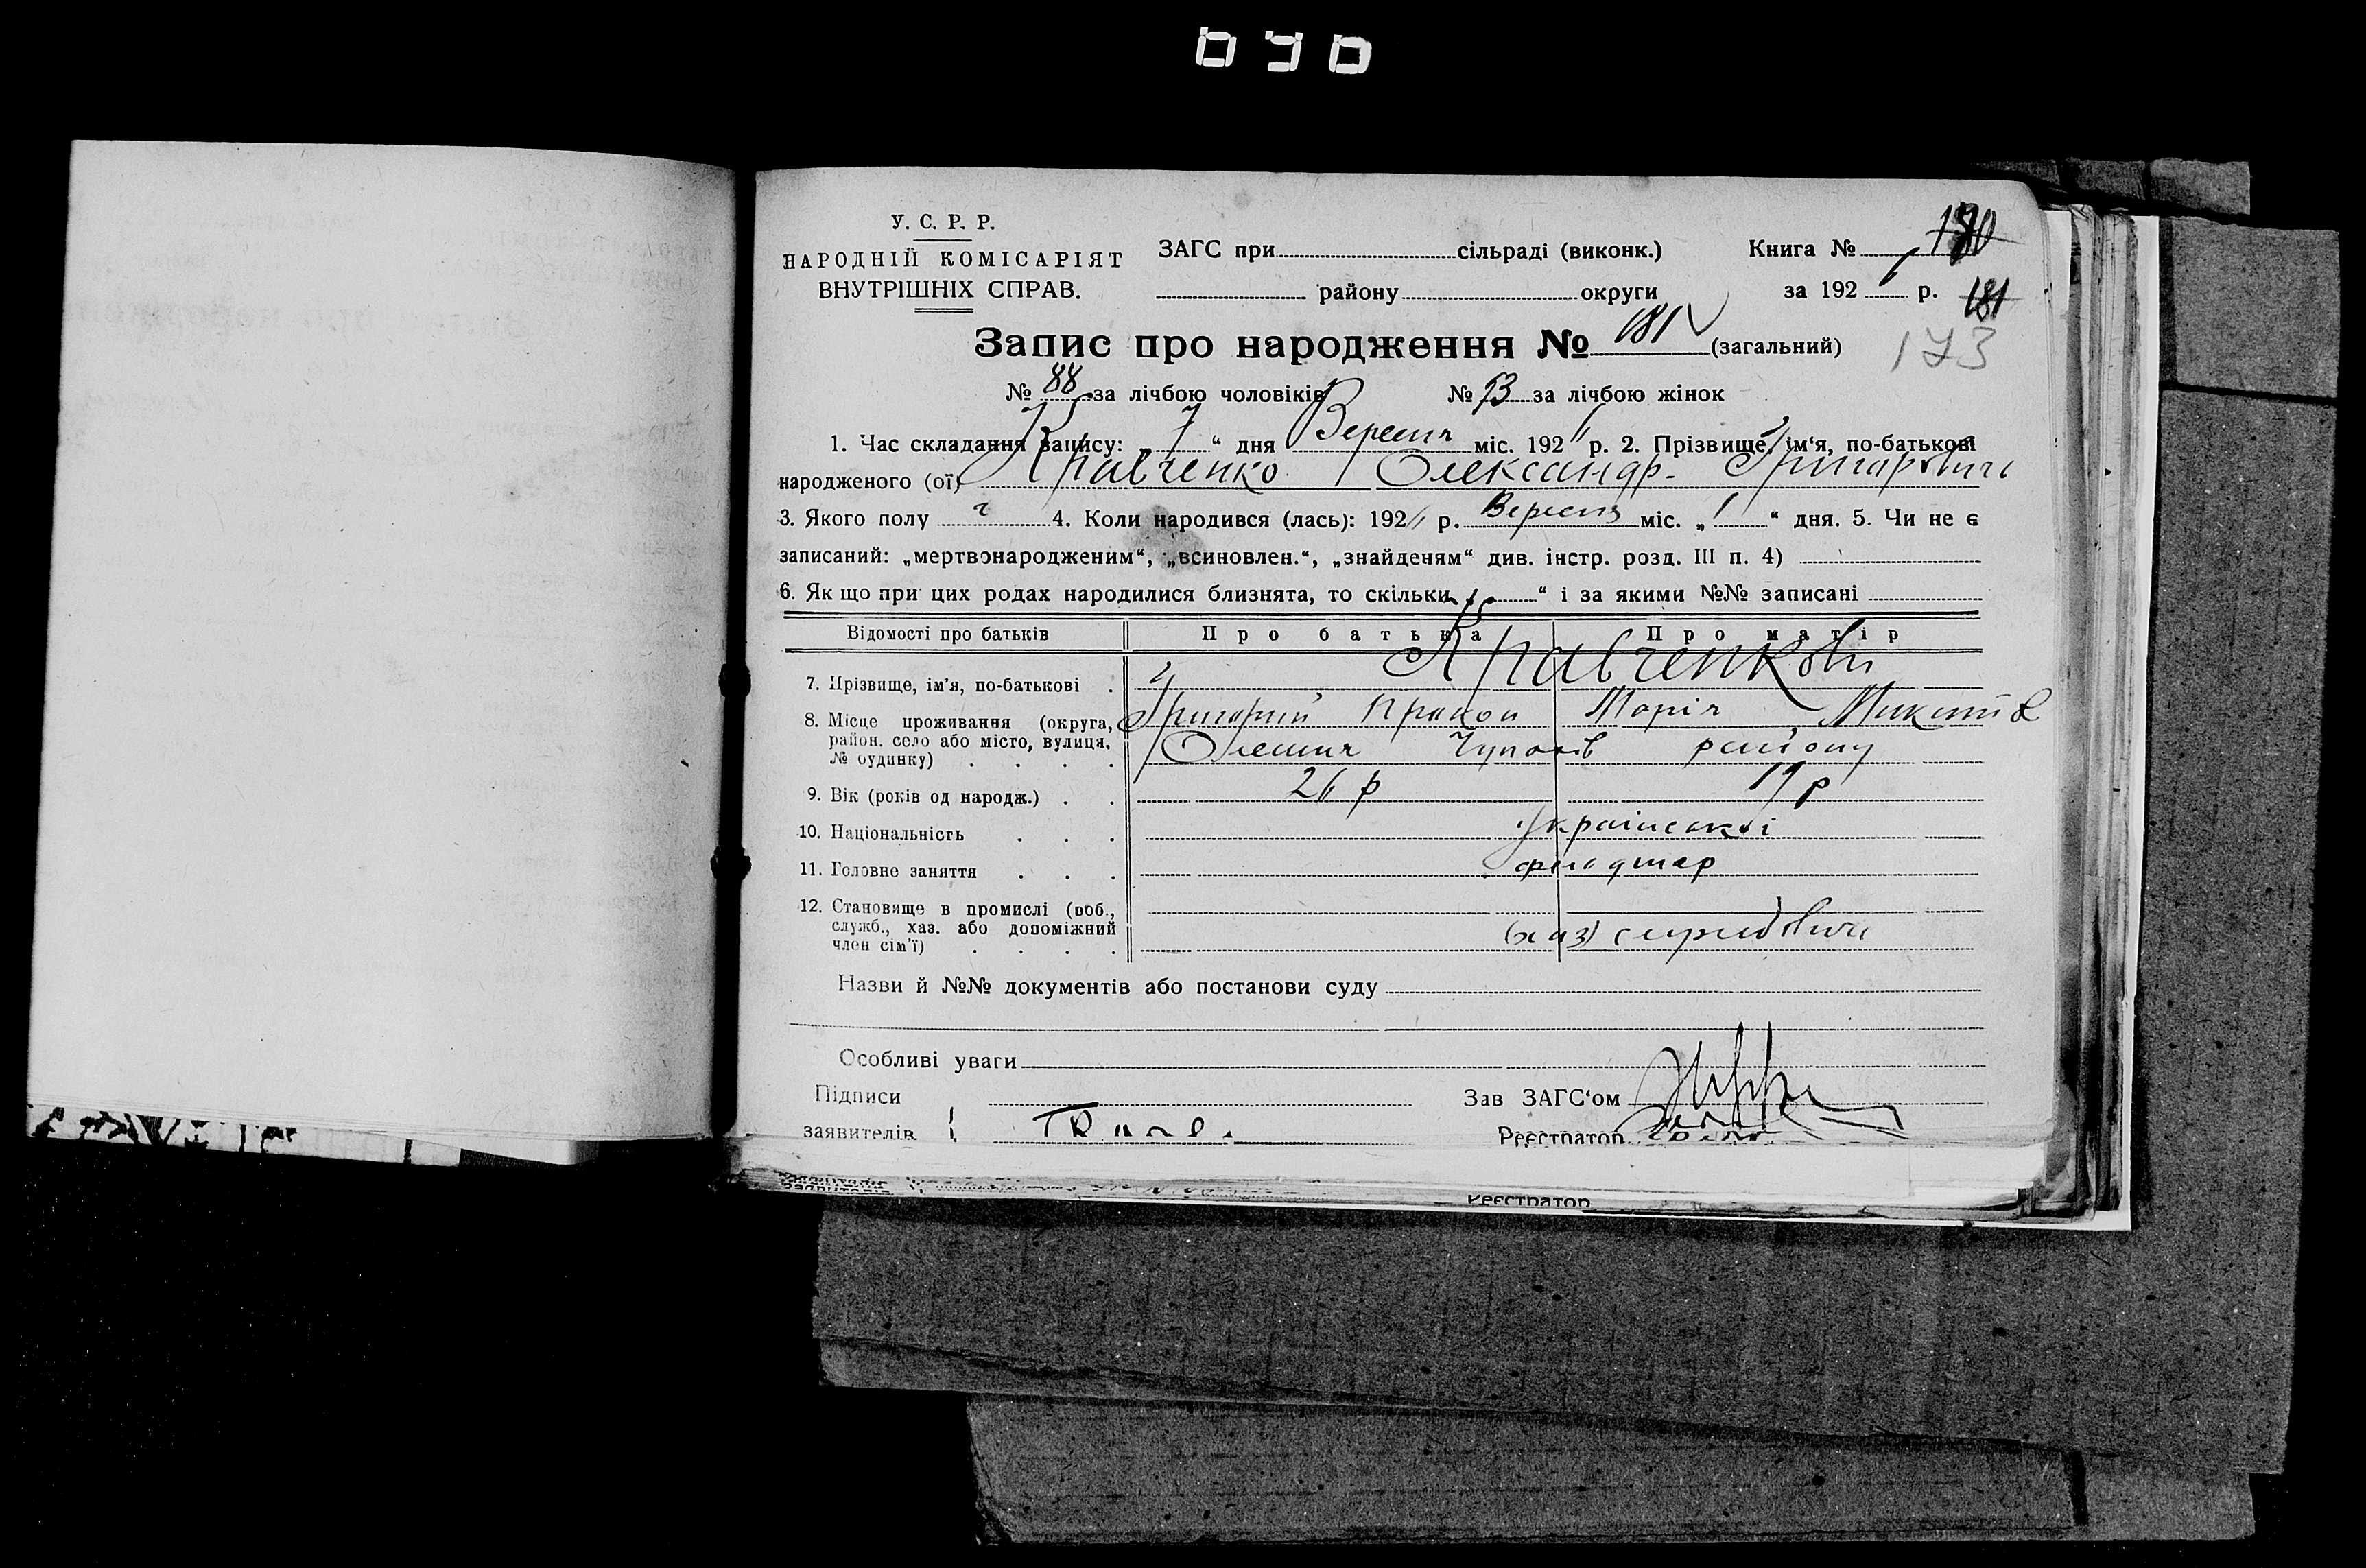 У. С. Р. Р.
НАРОДНІЙ КОМІСАРІЯТ
ВНУТРІШНІХ СПРАВ.
ЗАГС при сільраді (виконк.)
району округи
Книга № 180
за 192 6 р. 181
173
Запис про народження № 181 (загальний)
№ 88 за лічбою чоловіків № 93 за лічбою жінок
1. Час складання запису: „ 7 “ дня Вересня міс. 192 6 р. 2. Прізвище, ім‘я, по-батькові
народженого (ої) Кравченко Олександр Григорович
3. Якого полу ч 4. Коли народився (лась): 192 6 р. Вересня міс. „ 1 “ дня. 5. Чи не є
записаний: „мертвонародженим“, „всиновлен.“, „знайденям“ див. інстр. розд. III п. 4)
6. Як що при цих родах народилися близнята, то скільки “ і за якими №№ записані
Відомості про батьків Про батька Про матір
7. Прізвище, ім'я, по-батькові Кравченкови
Григорий Марія
8. Місце проживання (округа,
район. село або місто, вулиця,
№ будинку) Олешня району
9. Вік (років од народж.) 26 р 19 р
10. Національність Української
11. Головне заняття
12. Становище в промислі (роб.,
служб., хаз. або допоміжний
член сім'ї) (хаз)
Назви й №№ документів або постанови суду
Особливі уваги
Підписи
заявителів
Зав ЗАГС‘ом
Реєстратор
Реєстратор